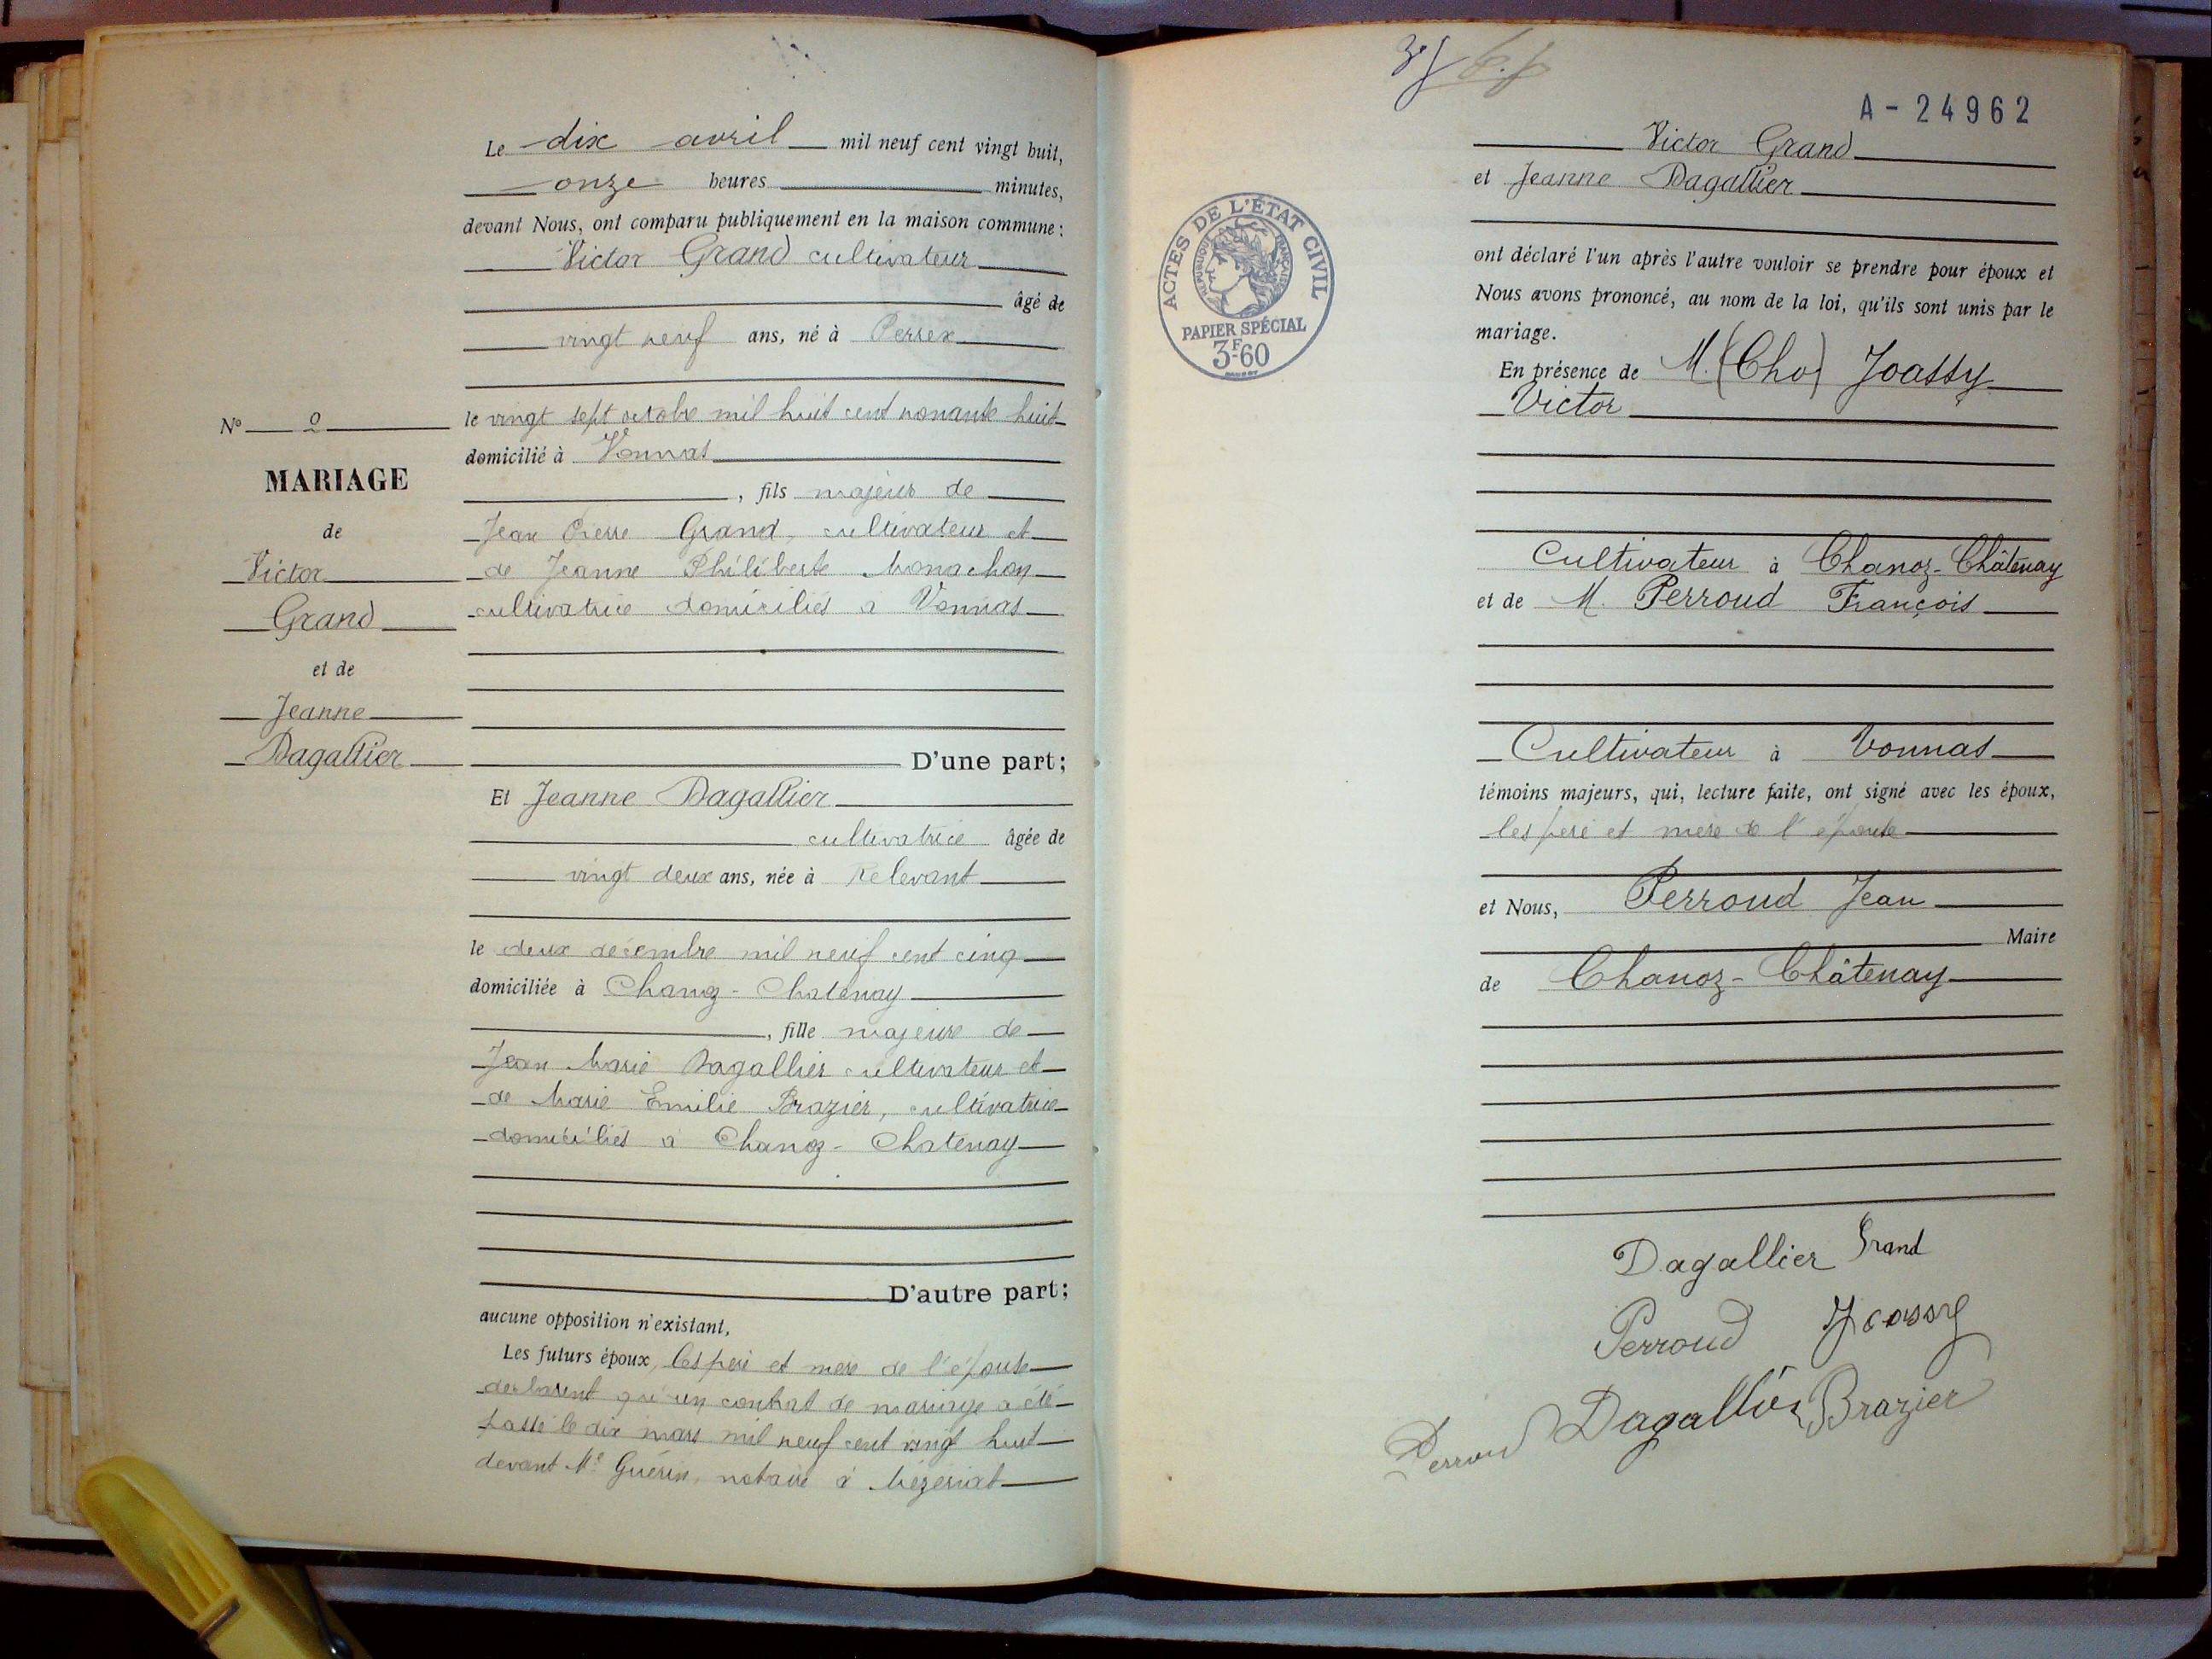 Le dix avril mil neuf cent vingt huit,
onze heures minutes,
devant Nous, ont comparu publiquement en la maison commune :
Victor Grand cultivateur
âgé de
vingt neuf ans, né à Perrex
le vingt sept octobre mil huit cent nonante huit
domicilié à Vonnas
, fils majeur de
Jean Pierre Grand, cultivateur et
de Jeanne Philiberte Monachon
cultivatrice domiciliés à Vonnas
D'une part;
Et Jeanne Dagallier
cultivatrice âgée de
vingt deux ans, née à Relevant
le deux décembre mil neuf cent cinq
domiciliée à Chanoz-Chatenay
, fille majeure de
Jean Marie Dagallier cultivateur et
de Marie Emilie Brazier, cultivatrice
domiciliés à Chanoz-Chatenay
D'autre part;
aucune opposition n'existant,
Les futurs époux, les père et mère de l'épouse
declarent qu'un contrat de mariage a été
passé le dix mars mil neuf cent vingt huit
devant Me Guérin, notaire à Mézériat
No 2
MARIAGE
de
Victor
Grand
et de
Jeanne
Dagallier
A-24962
Victor Grand
et Jeanne Dagallier
ont déclaré l'un après l'autre vouloir se prendre pour époux et
Nous avons prononcé, au nom de la loi, qu'ils sont unis par le
mariage.
En présence de M. (Cho) Joassy
Victor
Cultivateur à Chanoz-Châtenay
et de M. Perroud François
Cultivateur à Vonnas
témoins majeurs, qui, lecture faite, ont signé avec les époux,
les père et mère de l'épouse
et Nous, Perroud Jean
Maire
de Chanoz-Châtenay
Dagallier Grand
Perroud Joassy
Perroud Dagallier Brazier
ACTES DE L'ÉTAT CIVIL
RÉPUBLIQUE FRANÇAISE
PAPIER SPÉCIAL
3F60